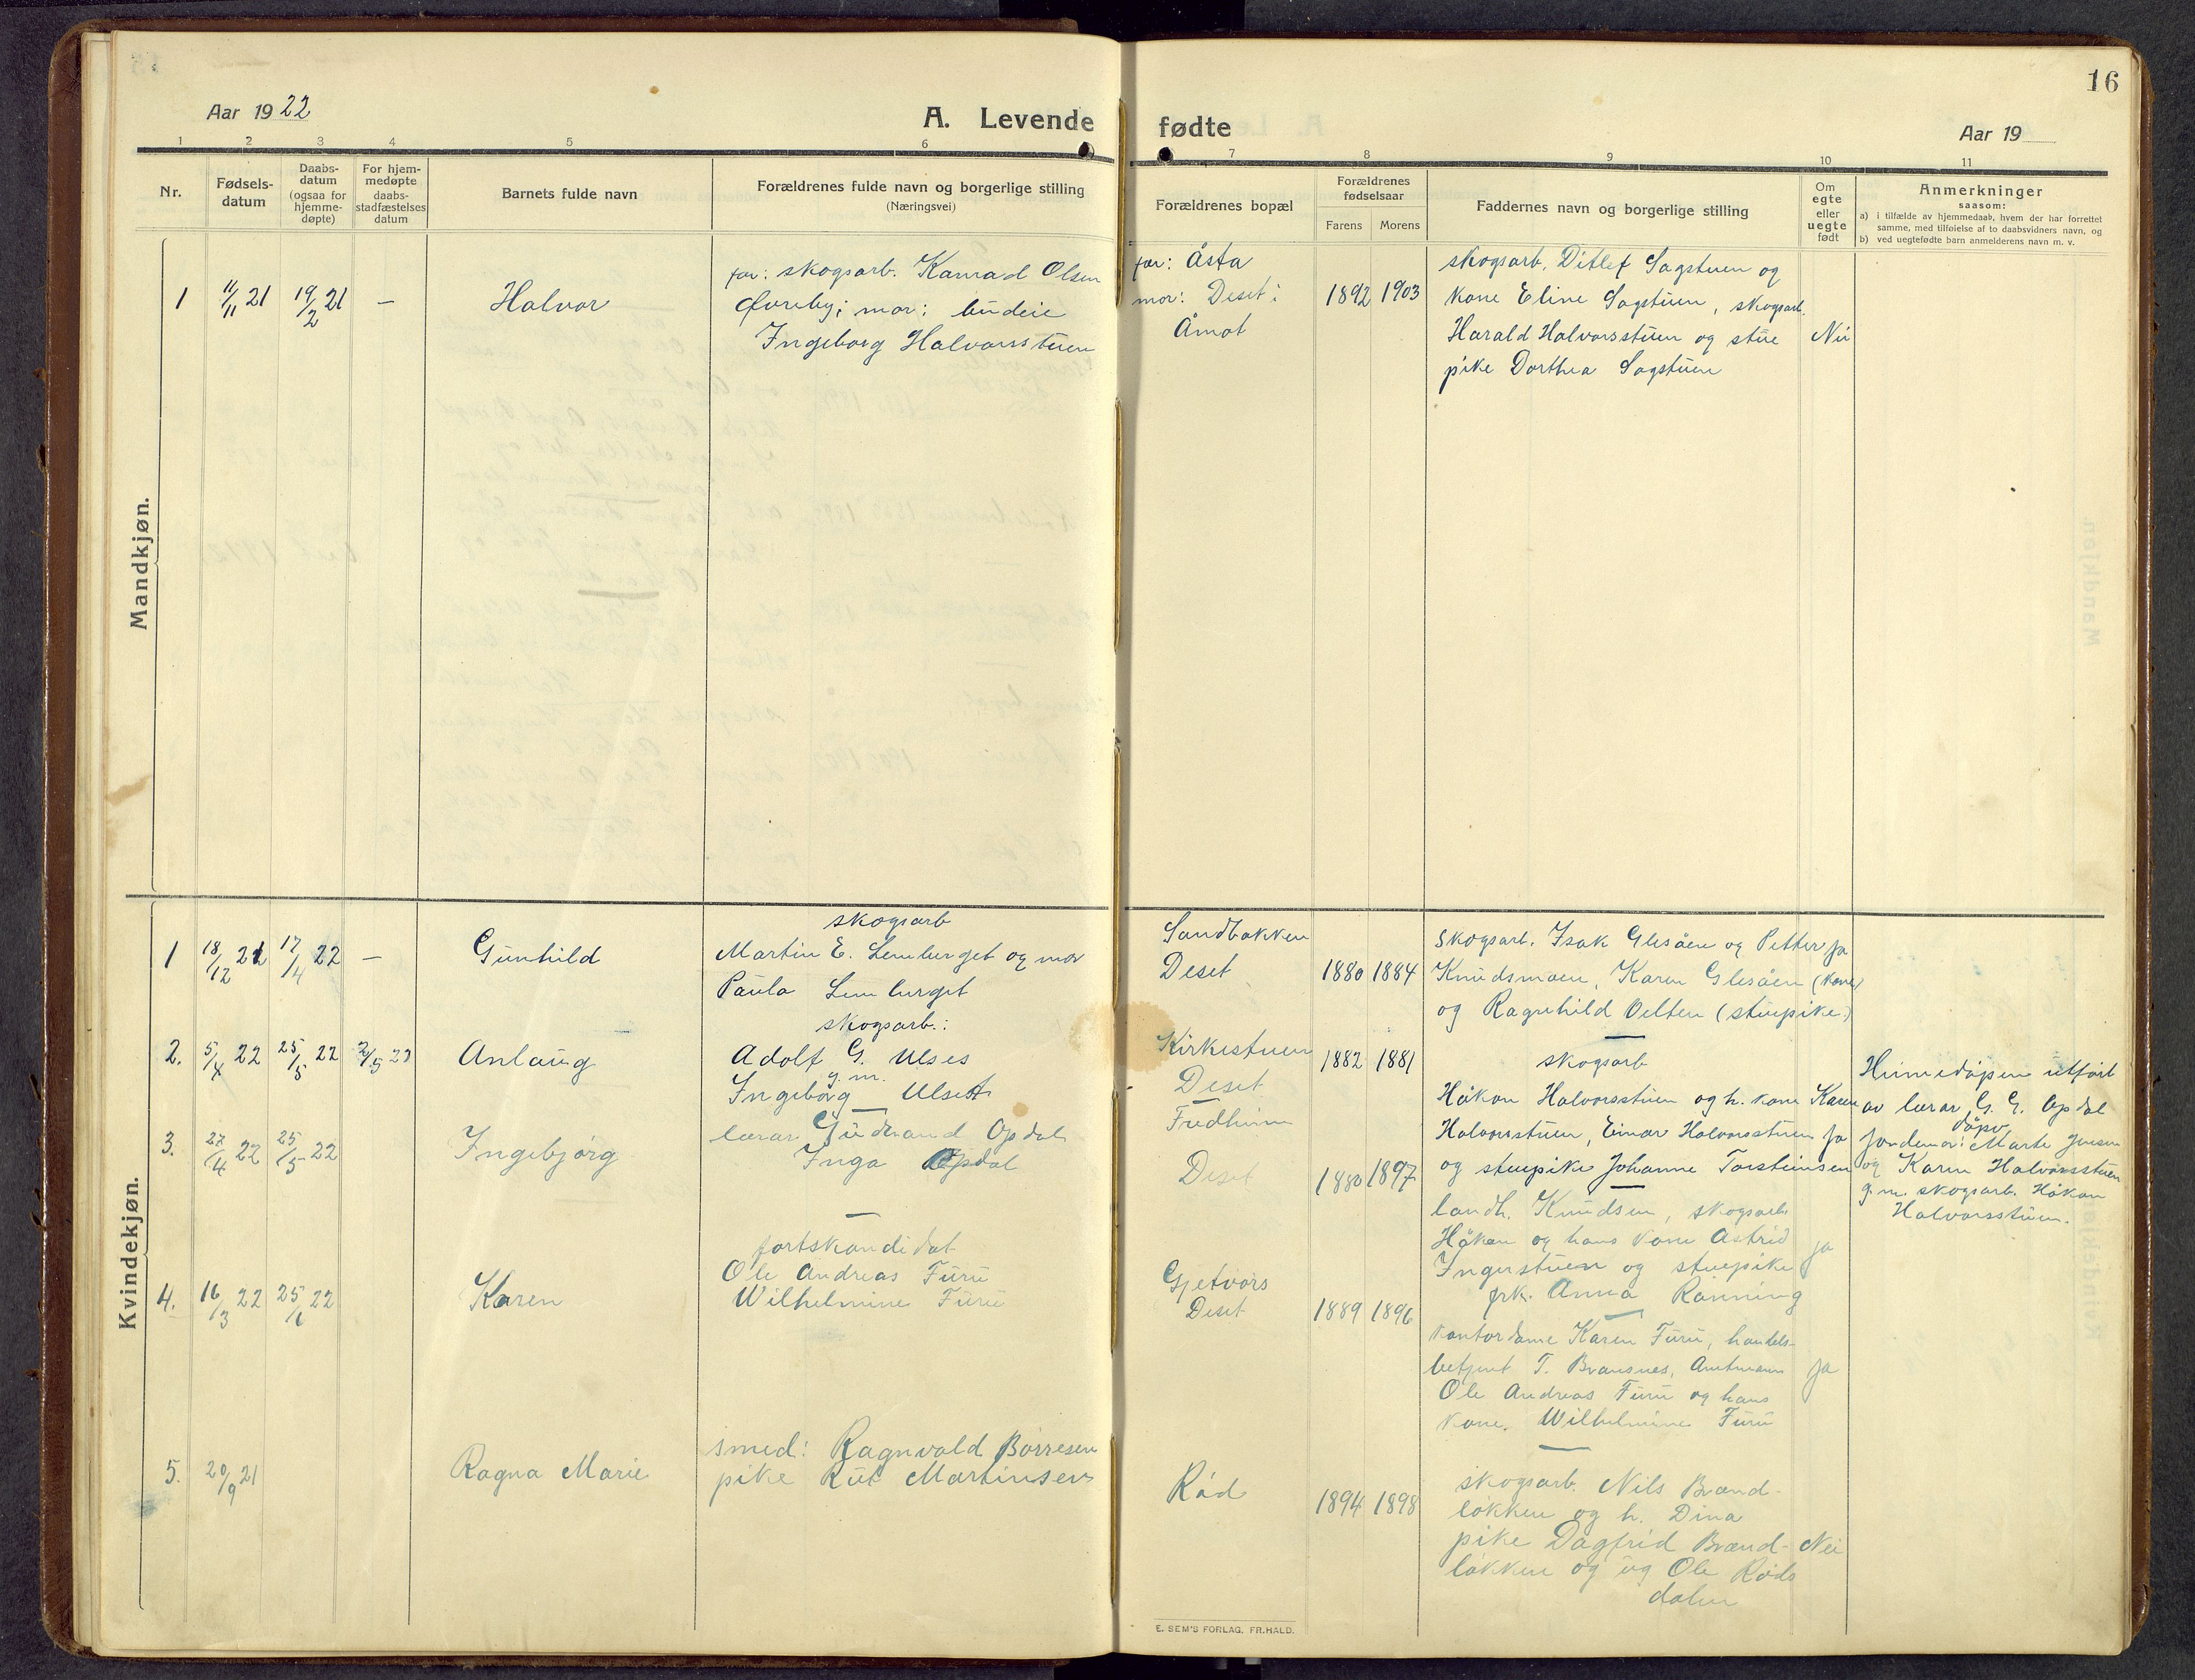 16
Aar 1922
A. Levende fødte
Aar 19
1 2 3 4 5 6 7 8 9 10 11
Nr.
Fødsels-
datum
Daabs-
datum
(ogsaa for
hjemme-
døpte)
For hjem-
medøpte
daabs-
stadfæstelses
datum
Barnets fulde navn
Forældrenes fulde navn og borgerlige stilling
(Næringsvei)
Forældrenes bopæl
Forældrenes
fødselsaar
Farens Morens
Faddernes navn og borgerlige stilling
Om
egte
eller
uegte
født
Anmerkninger
saasom:
a) i tilfælde av hjemmedaab, hvem der har forrettet
samme, med tilføielse af to daabsvidners navn, og
b) ved uegtefødte barn anmelderens navn m. v.
Mandkjøn.
1 11/11 21 19/2 21 — Halvor
far: skogsarb. Konrad Olsen
mor: budeie
Ingeborg Halvorsstuen
far: Åsta
mor: Deset i
Åmot
1892 1903
skogsarb. Ditlef Sagstuen og
kone Eline Sagstuen, skogsarb.
Harald Halvorsstuen og stue
pike Dorthea Sagstuen
Nei
Kvindekjøn.
1 18/12 21 17/4 22 — Gunhild
skogsarb
Martin E. Lemburget og mor
Paula Lemburget
Sandbakken
Deset
1880 1884
skogsarb. Isak Glesåen og Petter
Knudsmoen, Karen Glesåen (kone)
og Ragnhild Oelten (stuepike)
ja
2. 5/4 22 25/5 22 2/5 22 Anlaug
skogsarb.:
Adolf G. Ulses
g. m.
Ingeborg Ulset
Kirkestuen
Deset
1882 1881
skogsarb
Håkon Halvorsstuen og h. kone Karen
Halvorsstuen, Einar Halvorsstuen
og stuepike Johanne Torsteinsen
ja
Heimedåpen utført
av lærar G. G. Opdal
dåpv.
fordemor: Marte Jensen
og Karen Halvorsstuen
g. m. skogsarb. Håkon
Halvorsstuen.
3. 27/4 22 25/5 22 Ingebjørg
lærar Gudbrand Opdal
Inga Opdal
Fredheim
Deset
1880 1897
landh. Knudsen, skogsarb
Håkon og hans kone Astrid
Ingerstuen og stuepike
frk. Anna Rønning
ja
4. 16/3 22 25/6 22 Karen
forstkandidat
Ole Andreas Furu
Wilhelmine Furu
Gjetvors
Deset
1889 1896
kontordame Karen Furu, handels-
betjent T. Bransnes, Amtmann
Ole Andreas Furu og hans
kone. Wilhelmine Furu
ja
5. 20/9 21 Ragna Marie
smed: Ragnvald Børresen
pike Rut Martinsen
Rød
1894 1898
skogsarb. Nils Brænd-
løkken og h. Dina
pike Dagfrid Brænd-
løkken og ug Ole Røds
dalen
Nei
E. SEM'S FORLAG. FR.HALD.